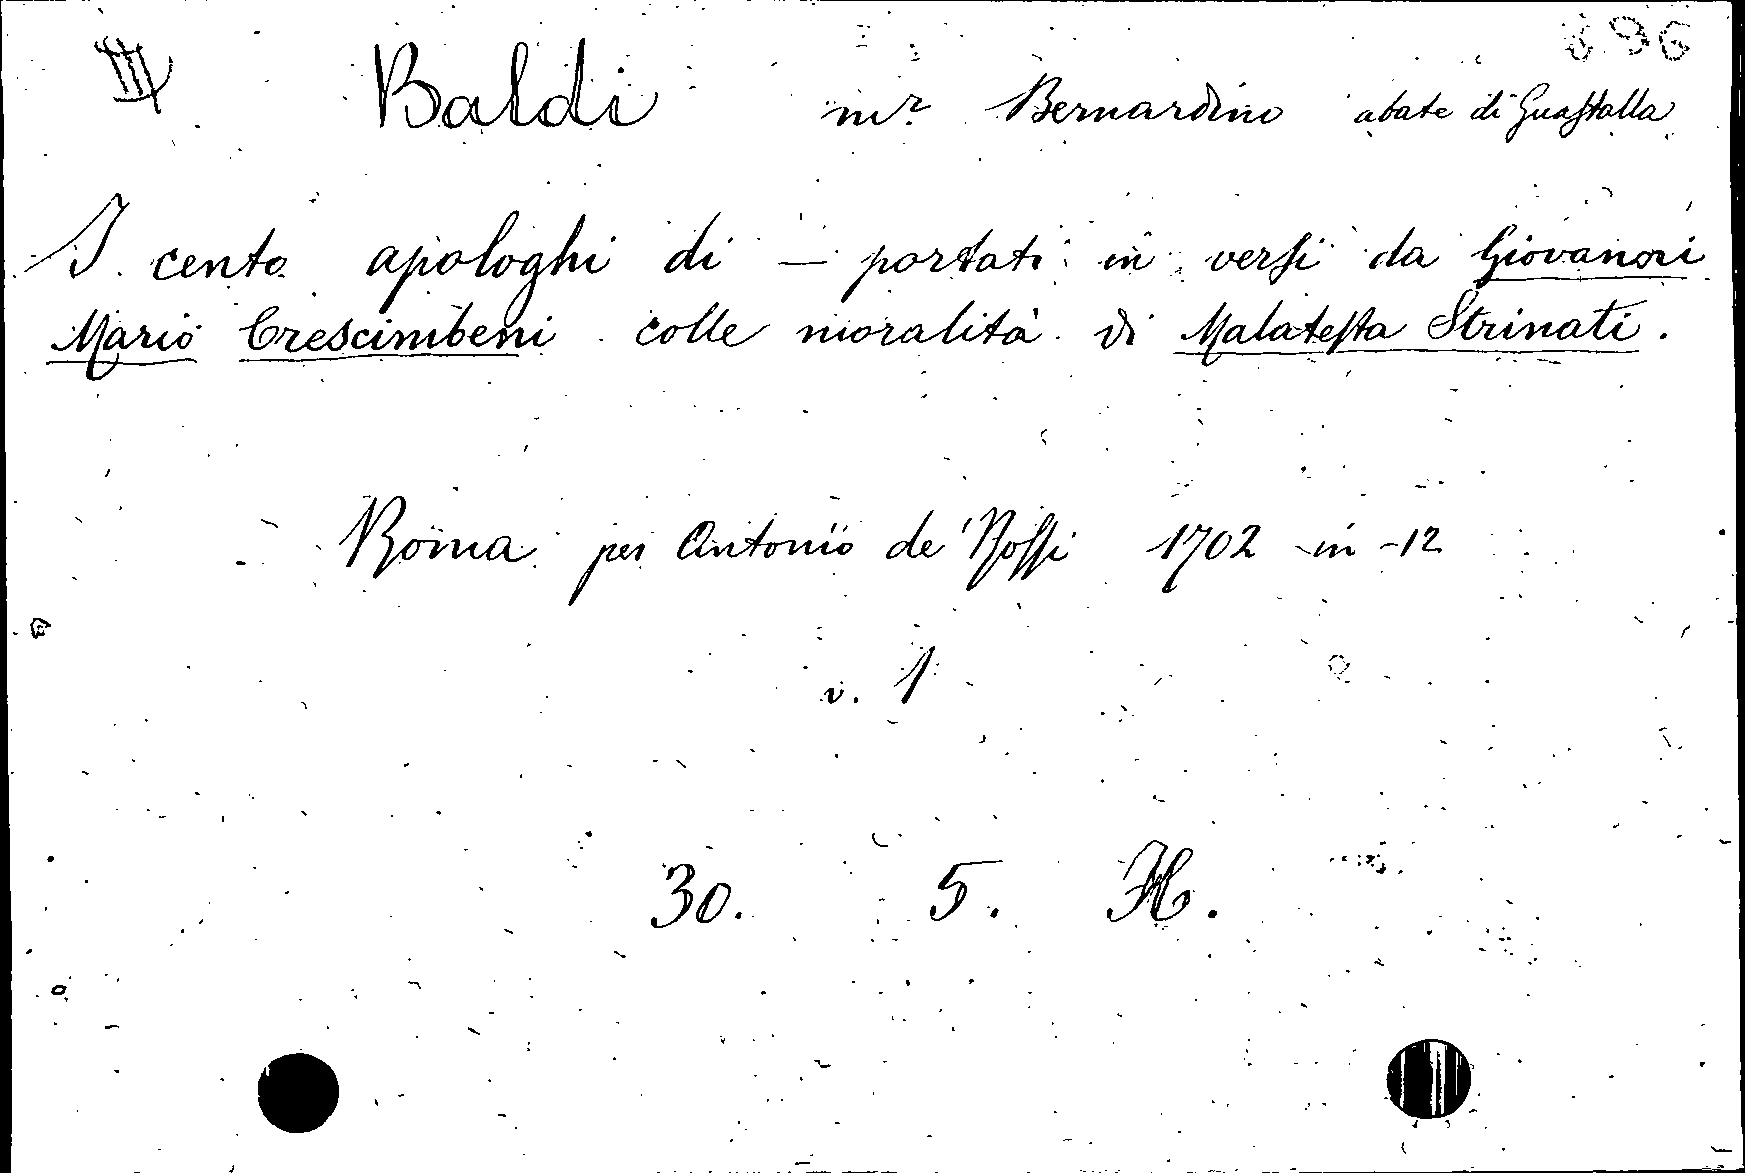 III Baldi mr. Bernardino abate di Guastalla
I cento apologhi di — portati in versi da Giovanni
Mario Crescimbeni colle moralità di Malatesta Strinati.
Roma per Antonio de' Rossi 1702 in-12
v. 1
30. 5. H.